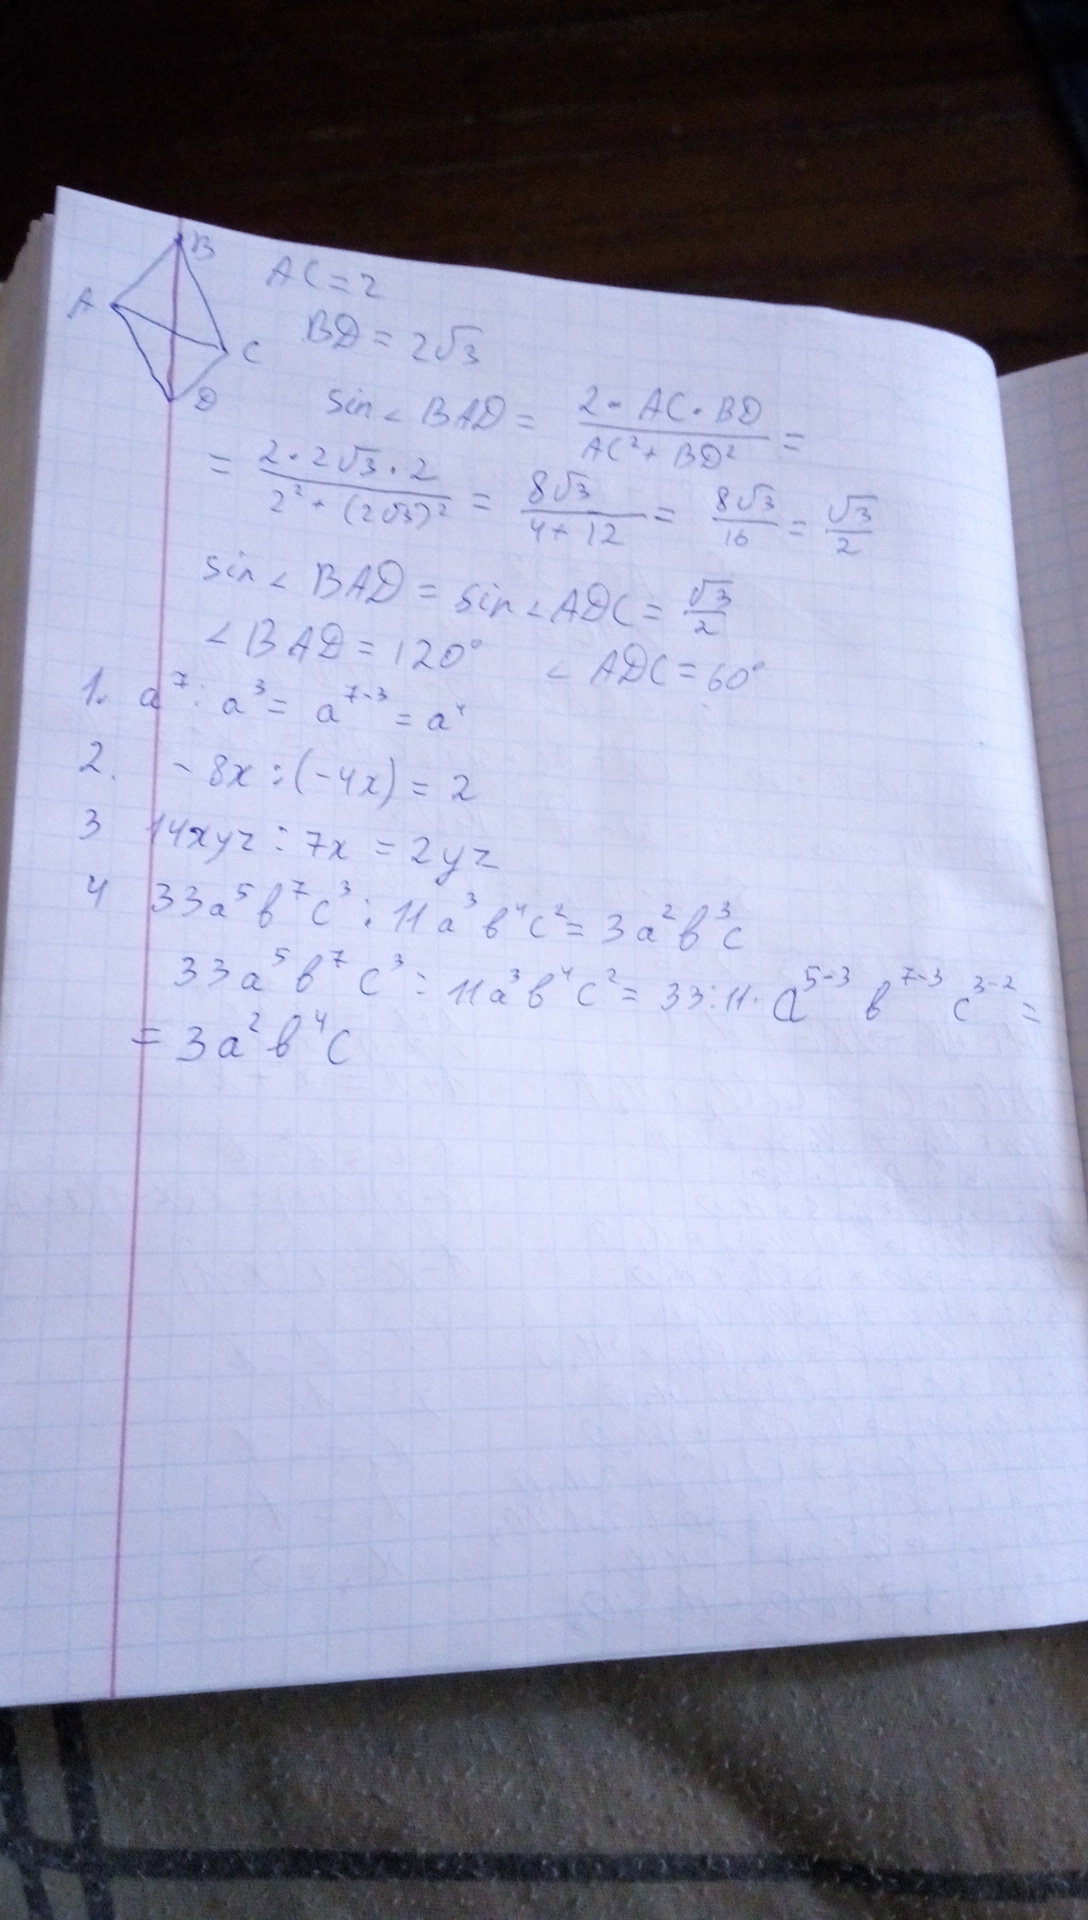 B
A
C
D
AC=2
BD=2√3
sin∠BAD = 2·AC·BD/AC²+BD² =
= 2·2√3·2/2²+(2√3)² = 8√3/4+12 = 8√3/16 = √3/2
sin∠BAD = sin∠ADC = √3/2
∠BAD=120° ∠ADC=60°
1. a⁷:a³= a⁷⁻³=a⁴
2. -8x:(-4x)=2
3 14xyz:7x=2yz
4 33a⁵b⁷c³:11a³b⁴c²=3a²b³c
33a⁵b⁷c³:11a³b⁴c²=33:11·a⁵⁻³b⁷⁻³c³⁻²=
=3a²b⁴c